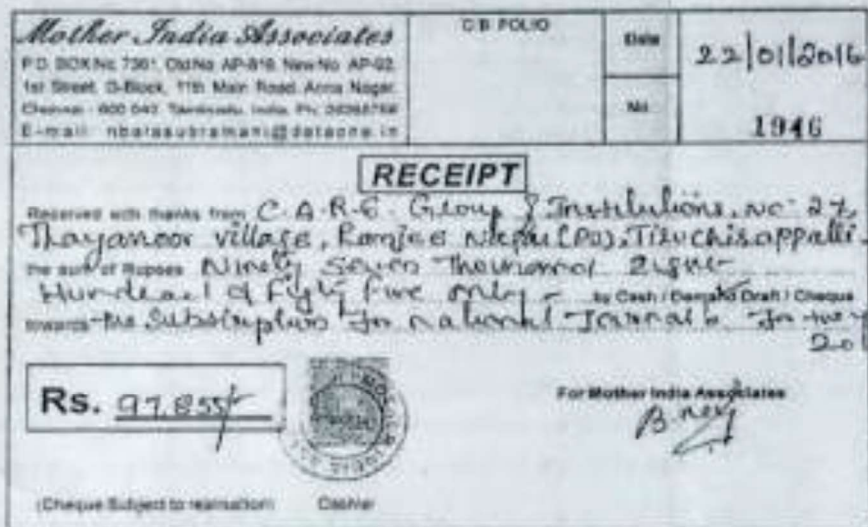 Mother India Associates
P.O. BOX No. 7301, Old No. AP-816, New No. AP-92
1st Street, G-Block, 11th Main Road, Anna Nagar,
Chennai - 600 040. Tamilnadu, India. Ph:
E-mail: nbalasubramani@dataone.in
C.B. FOLIO
Date
22/01/2016
No.
1946
RECEIPT
Received with thanks from C.A.R.E. Group of Institutions, No. 27,
Thayanoor village, Ramjee Nagar (PO), Tiruchirappalli.
the sum of Rupees Ninety Seven Thousand Eight
Hundred & Fifty Five only - by Cash / Demand Draft / Cheque
towards the Subscription for national Journals for the
201
Rs. 97,855/-
For Mother India Associates
(Cheque Subject to realisation)
Cashier